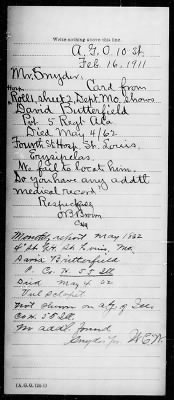 Write nothing above this line.
A.G.O. 10 St.
Feb. 16, 1911
Mr. Snyder,
Card from
Hosp. Rolls, sheet 2, Dept. Mo. Shows
David Butterfield
Pvt 5 Regt
Died May 4/62
Fourth St Hosp. St. Louis,
Erysipelas.
We fail to locate him.
Do you have any addtl
medical record
Respectfully
Monthly report May 1862
4th St. G.H. St. Louis, Mo.
David Butterfield
P. Co. H. 55 Ill.
Died May 4 62
Not shown on
Co H. 55 Ill.
No addl found
Snyder
(A. G. O. 120-1)